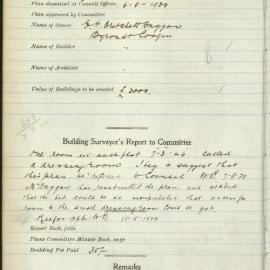 Plan deposited at Council Offices 6-8-1930
Plan approved by Committee
Name of Owner
Byron St Coogee
Name of Builder "
Name of Architect "
Value of Buildings to be erected £ 2000
Building Surveyor's Report to Committee
One room in each flat 7-3 x 6 called
a dressing room I beg to suggest that
this plan be referred to Council 7-8-30
Mr has resubmitted the plan and stated
that the bed could be so manipulated that access for
room to the small dressing room could be got.
Refer 11-8-1930
Report Book, folio
Plans Committee Minute Book, page
Building Fee Paid 30/-
Remarks